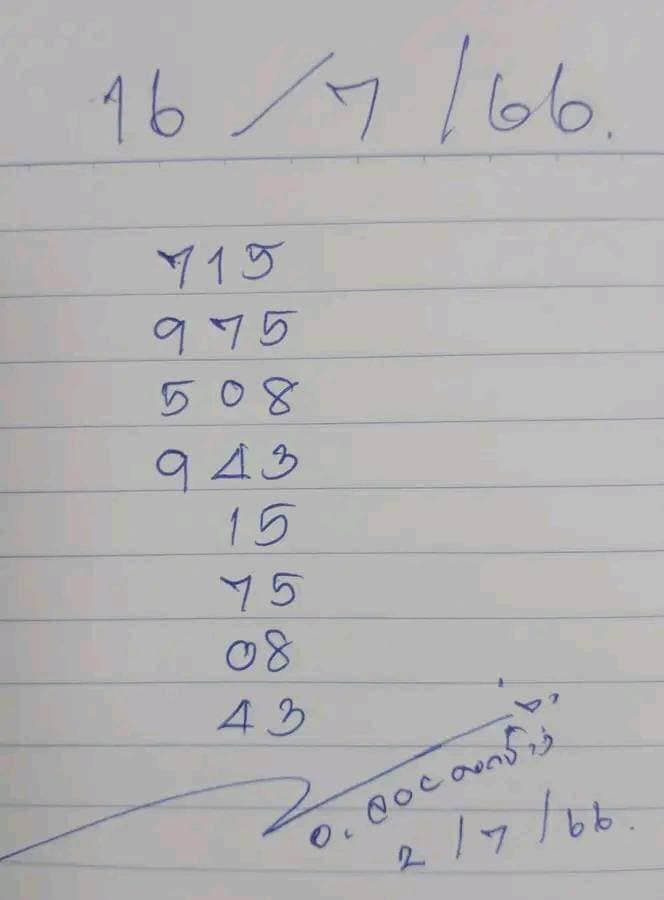 16/7/66.
715
975
508
943
15
75
08
43
2/7/66.